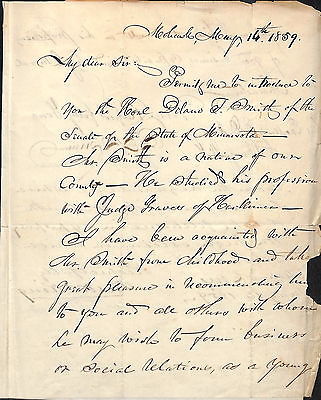 Mohawk May 14th 1859.
My dear Sir:
Permit me to introduce
to you the Hon. Delano T. Smith of the
Senate of the State of Minnesota —
Mr. Smith is a native of our
County — He studied his profession
with Judge Graves of Herkimer —
I have been acquainted with
Mr. Smith from childhood and take
great pleasure in recommending him
to you and all others with whom
he may wish to form business
or social relations, as a young